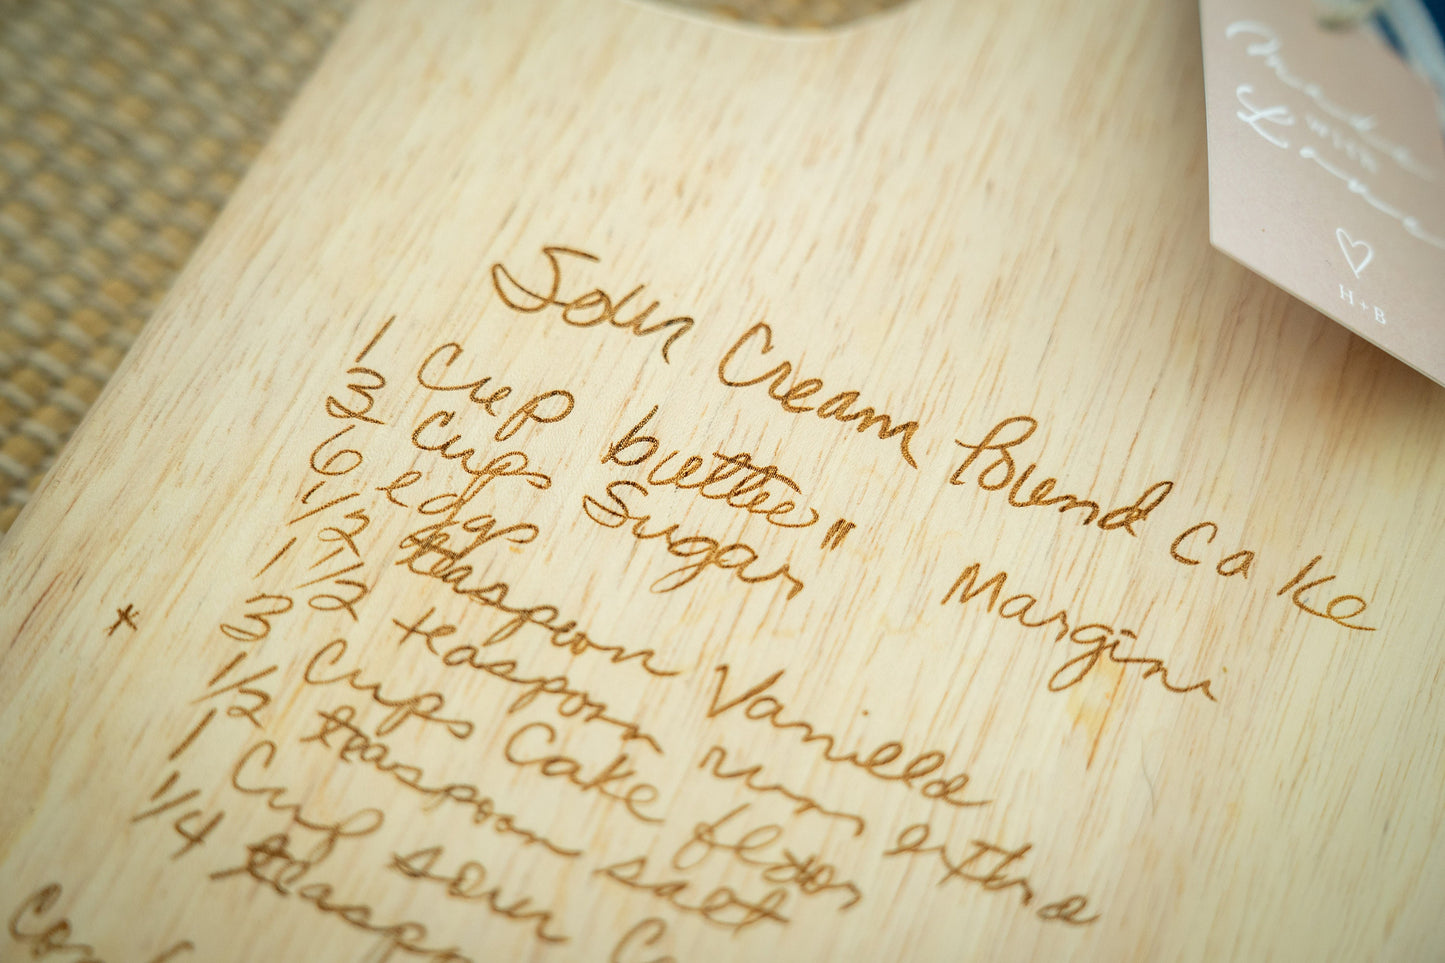 Made
with
Love
H + B
Sour Cream Pound Cake
1 Cup butter " Margini
3 Cups Sugar
6 eggs
1/2 teaspoon Vanilla
1 1/2 teaspoon rum extra
* 3 Cups Cake flour
1/2 teaspoon salt
1 Cup sour C
1/4 teaspo